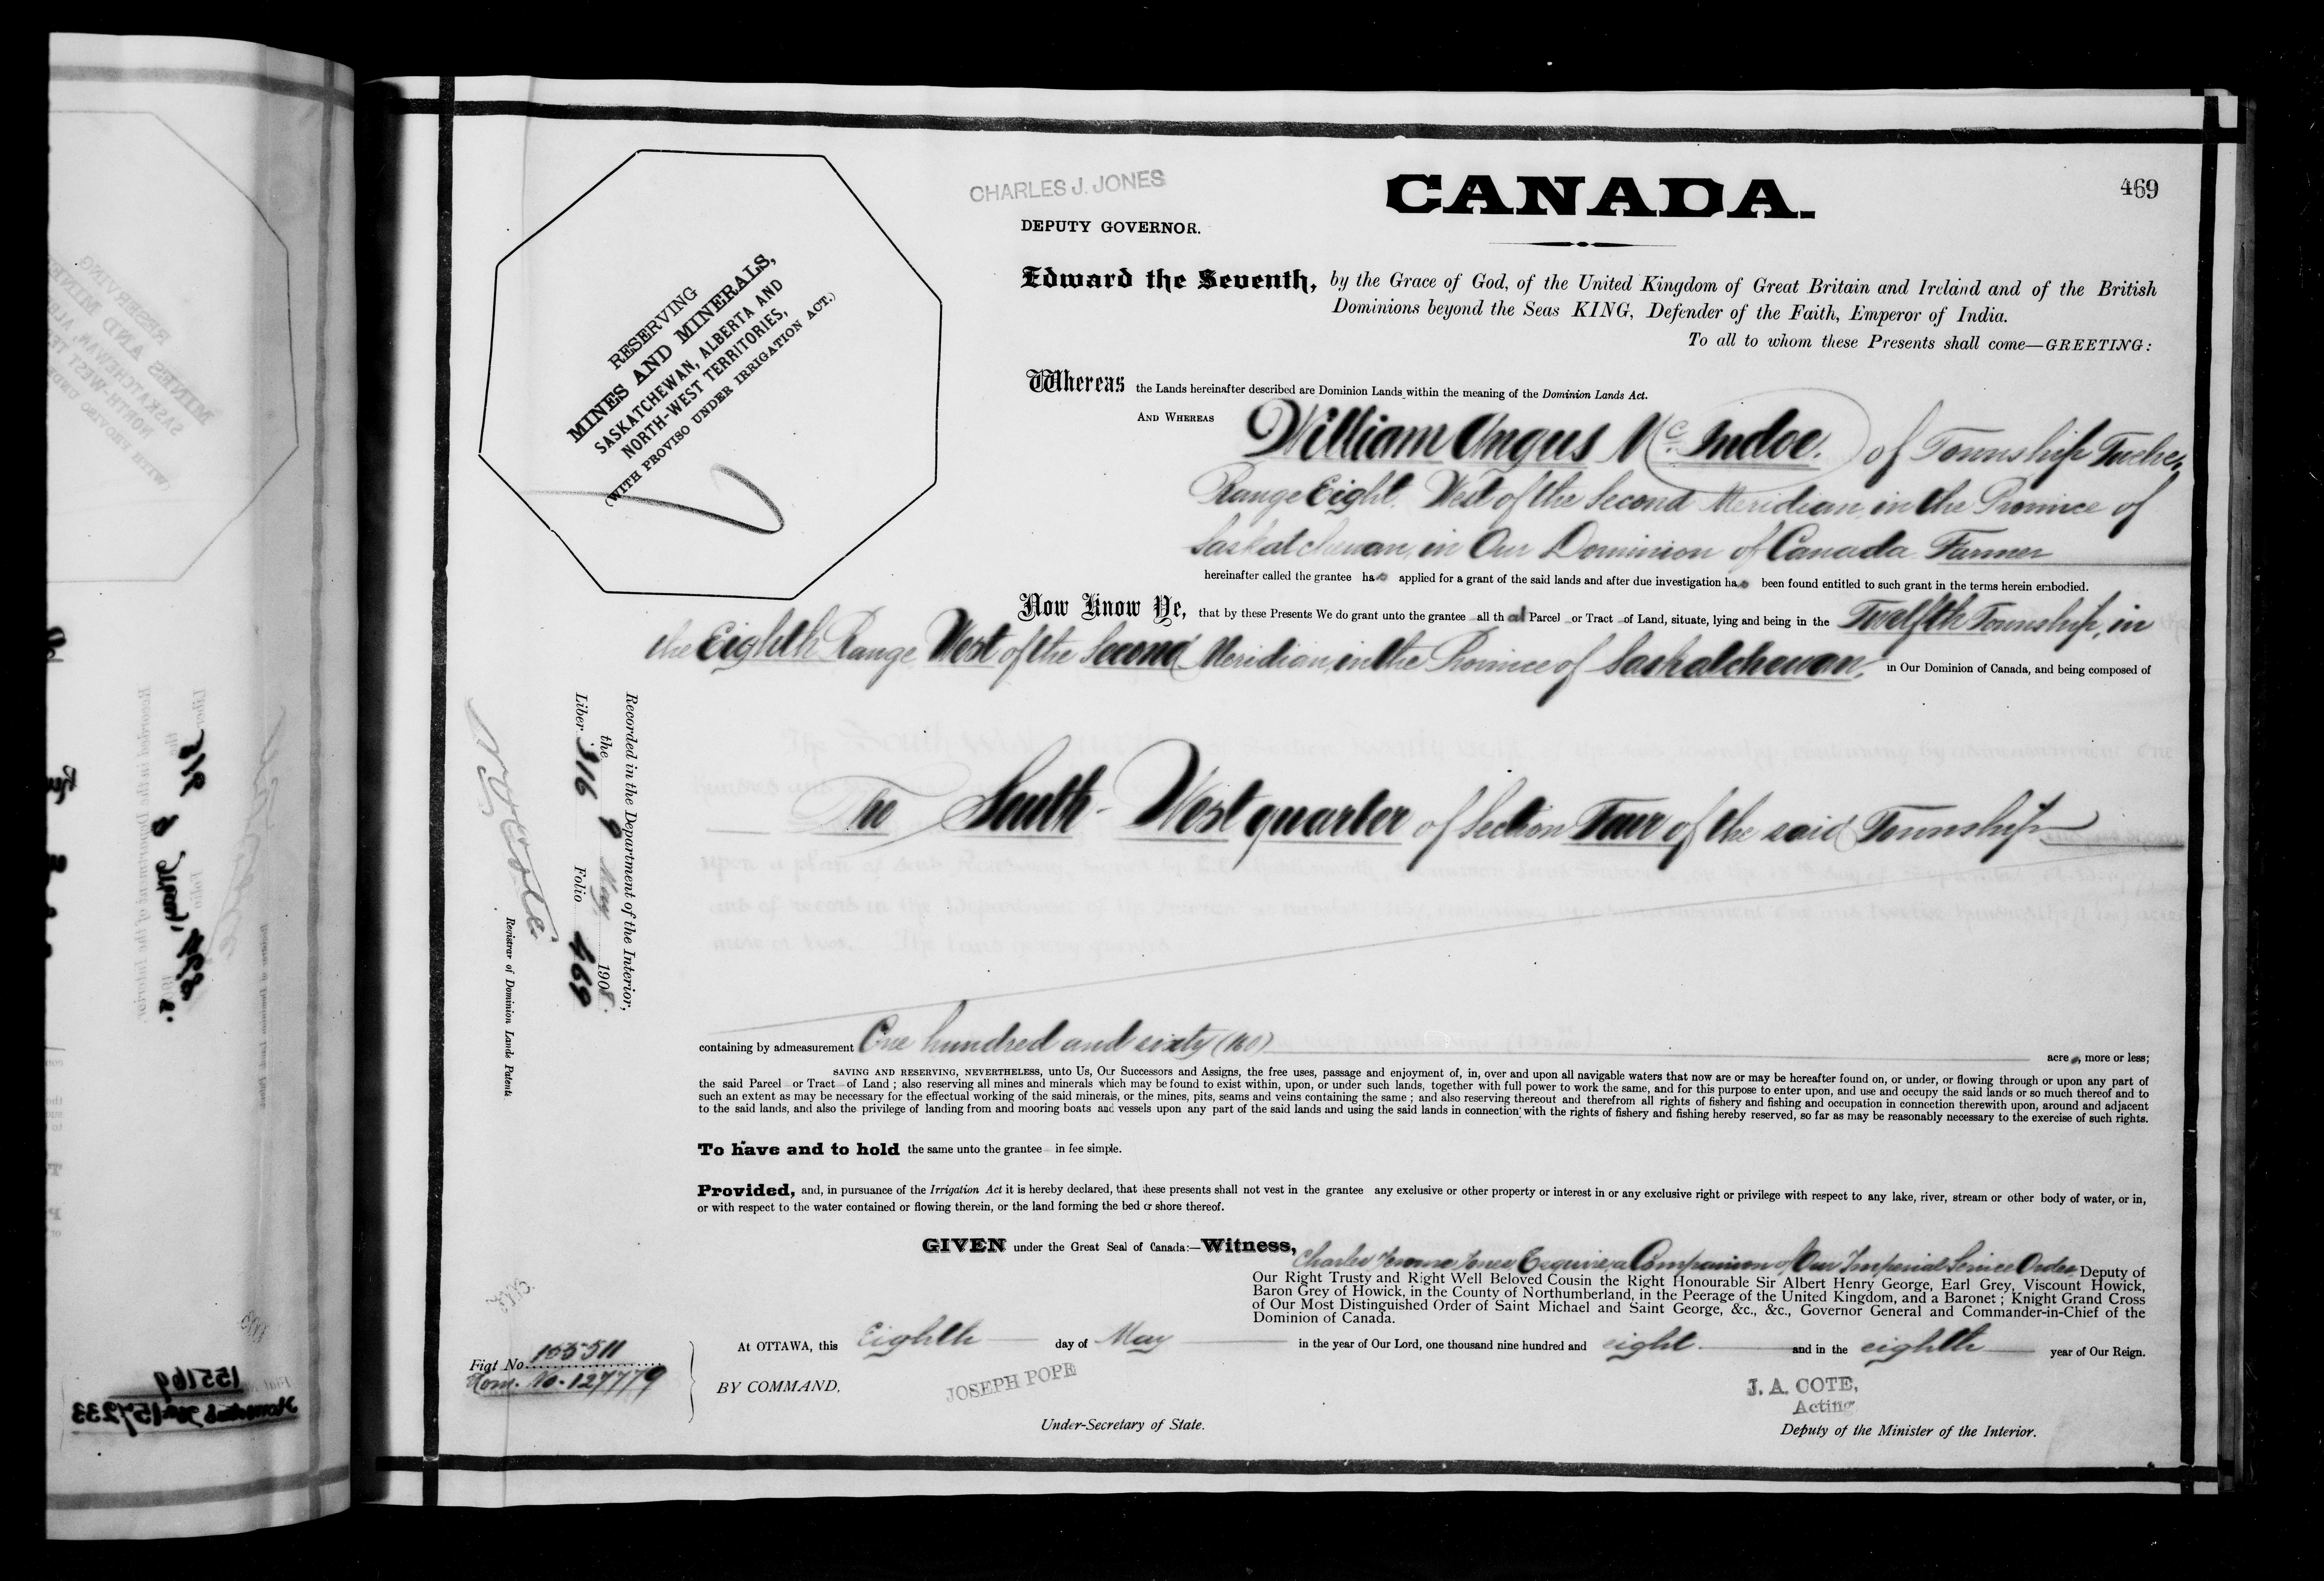 469
CHARLES J. JONES
DEPUTY GOVERNOR.
CANADA.
RESERVING
MINES AND MINERALS,
SASKATCHEWAN, ALBERTA AND
NORTH-WEST TERRITORIES,
(WITH PROVISO UNDER IRRIGATION ACT.)
Edward the Seventh, by the Grace of God, of the United Kingdom of Great Britain and Ireland and of the British
Dominions beyond the Seas KING, Defender of the Faith, Emperor of India.
To all to whom these Presents shall come—GREETING:
Whereas the Lands hereinafter described are Dominion Lands within the meaning of the Dominion Lands Act.
AND WHEREAS William Angus McIndoe. of Township Twelve,
Range Eight, West of the Second Meridian, in the Province of
Saskatchewan, in Our Dominion of Canada, Farmer
hereinafter called the grantee has applied for a grant of the said lands and after due investigation has been found entitled to such grant in the terms herein embodied.
Now Know Ye, that by these Presents We do grant unto the grantee all that Parcel or Tract of Land, situate, lying and being in the Twelfth Township, in
the Eighth Range, West of the Second Meridian, in the Province of Saskatchewan, in Our Dominion of Canada, and being composed of
The South-West quarter of Section Four of the said Township
Recorded in the Department of the Interior,
the 9 May 1908.
Liber 316 Folio 469
N. O. Coté
Registrar of Dominion Lands Patents
containing by admeasurement One hundred and sixty (160) acres, more or less;
SAVING AND RESERVING, NEVERTHELESS, unto Us, Our Successors and Assigns, the free uses, passage and enjoyment of, in, over and upon all navigable waters that now are or may be hereafter found on, or under, or flowing through or upon any part of
the said Parcel or Tract of Land; also reserving all mines and minerals which may be found to exist within, upon, or under such lands, together with full power to work the same, and for this purpose to enter upon, and use and occupy the said lands or so much thereof and to
such an extent as may be necessary for the effectual working of the said minerals, or the mines, pits, seams and veins containing the same; and also reserving thereout and therefrom all rights of fishery and fishing and occupation in connection therewith upon, around and adjacent
to the said lands, and also the privilege of landing from and mooring boats and vessels upon any part of the said lands and using the said lands in connection with the rights of fishery and fishing hereby reserved, so far as may be reasonably necessary to the exercise of such rights.
To have and to hold the same unto the grantee in fee simple.
Provided, and, in pursuance of the Irrigation Act it is hereby declared, that these presents shall not vest in the grantee any exclusive or other property or interest in or any exclusive right or privilege with respect to any lake, river, stream or other body of water, or in,
or with respect to the water contained or flowing therein, or the land forming the bed or shore thereof.
GIVEN under the Great Seal of Canada:—Witness, Charles Jerome Jones Esquire, a Companion of Our Imperial Service Order Deputy of
Our Right Trusty and Right Well Beloved Cousin the Right Honourable Sir Albert Henry George, Earl Grey, Viscount Howick,
Baron Grey of Howick, in the County of Northumberland, in the Peerage of the United Kingdom, and a Baronet; Knight Grand Cross
of Our Most Distinguished Order of Saint Michael and Saint George, &c., &c., Governor General and Commander-in-Chief of the
Dominion of Canada.
At OTTAWA, this Eighth day of May in the year of Our Lord, one thousand nine hundred and eight and in the eighth year of Our Reign.
Fiat No. 155511
Hom. No. 127779
BY COMMAND,
JOSEPH POPE
Under-Secretary of State.
J. A. COTE,
Acting
Deputy of the Minister of the Interior.